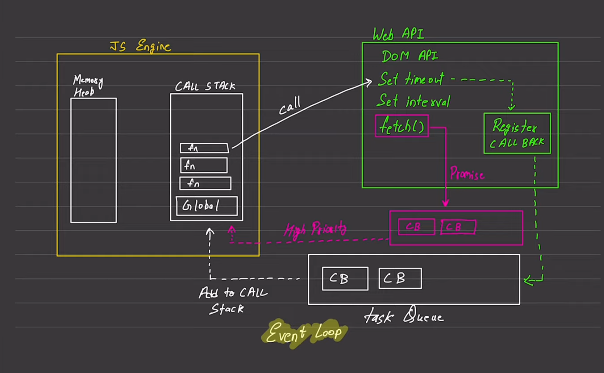 JS Engine
Memory
Heab
CALL STACK
fn
fn
fn
Global
call
Web API
DOM API
Set timeout
Set interval
fetch()
Register
CALL BACK
Promise
High Priority
CB CB
Add to CALL
Stack
CB CB
task Queue
Event Loop